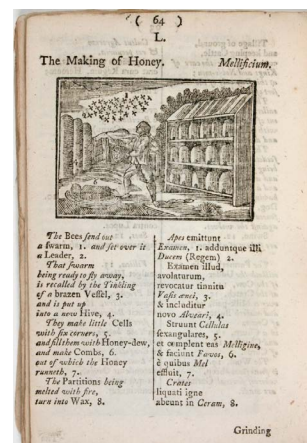 ( 64 )
L.
The Making of Honey. Mellificium.
The Bees send out
a swarm, 1. and set over it
a Leader, 2.
That swarm
being ready to fly away,
is recalled by the Tinkling
of a brazen Vessel, 3.
and is put up
into a new Hive, 4.
They make little Cells
with six corners, 5.
and fill them with Honey-dew,
and make Combs, 6.
out of which the Honey
runneth, 7.
The Partitions being
melted with fire,
turn into Wax, 8.
Apes emittunt
Examen, 1. adduntque illi
Ducem (Regem) 2.
Examen illud,
avolaturum,
revocatur tinnitu
Vasis ænei, 3.
& includitur
novo Alveari, 4.
Struunt Cellulas
sexangulares, 5.
et complent eas Melligine,
& faciunt Favos, 6.
è quibus Mel
effluit, 7.
Crates
liquati igne
abeunt in Ceram, 8.
Grinding